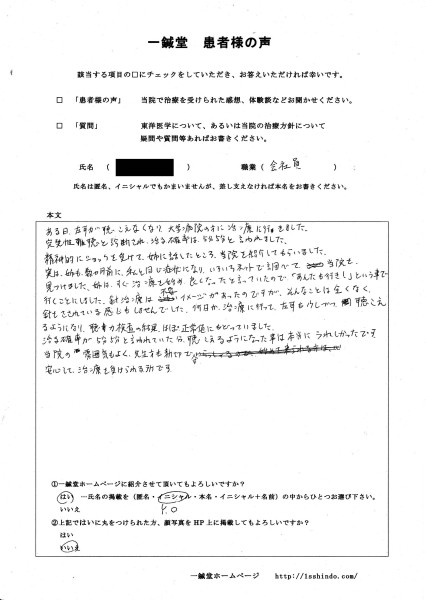 一鍼堂 患者様の声
該当する項目の□にチェックをしていただき、お答えいただければ幸いです。
□ 「患者様の声」 当院で治療を受けられた感想、体験談などお聞かせください。
□ 「質問」 東洋医学について、あるいは当院の治療方針について
疑問や質問等あればお書きください。
氏名 ( ) 職業 ( 会社員 )
氏名は匿名、イニシャルでもかまいませんが、差し支えなければ本名をお書きください。
本文
ある日、左耳が聴こえなくなり、大学病院の方に治療に行きました。
突発性難聴と診断され、治る確率は5分5分と言われました。
精神的にショックを受けて、姉に話したところ、当院を紹介してもらいました。
実は、姉も数ヶ月前に、私と同じ症状になり、いろいろネットで調べて 当院を
見つけました。姉は、すぐに治療を始め、良くなったと言っていたので「あんたも行きし」という事で
行くことにしました。針治療は 不安 イメージがあったのですが、そんなことは全くなく、
針をさされている感じもしませんでした。何日か、治療に行って、左耳も少しづつ 聴こえ
るようになり、聴力検査の結果、ほぼ正常値にもどっていました。
治る確率が5分5分と言われていた分、聴こえるようになった事は本当にうれしかったです。
当院の 雰囲気もよく、先生方も親切で
安心して、治療を受けられる所です。
①一鍼堂ホームページに紹介させて頂いてもよろしいですか？
はい ―氏名の掲載を（匿名・イニシャル・本名・イニシャル＋名前）の中からひとつお選び下さい。
いいえ Y.O
②上記ではいに丸をつけられた方、顔写真をHP上に掲載してもよろしいですか？
はい
いいえ
一鍼堂ホームページ http://1sshindo.com/